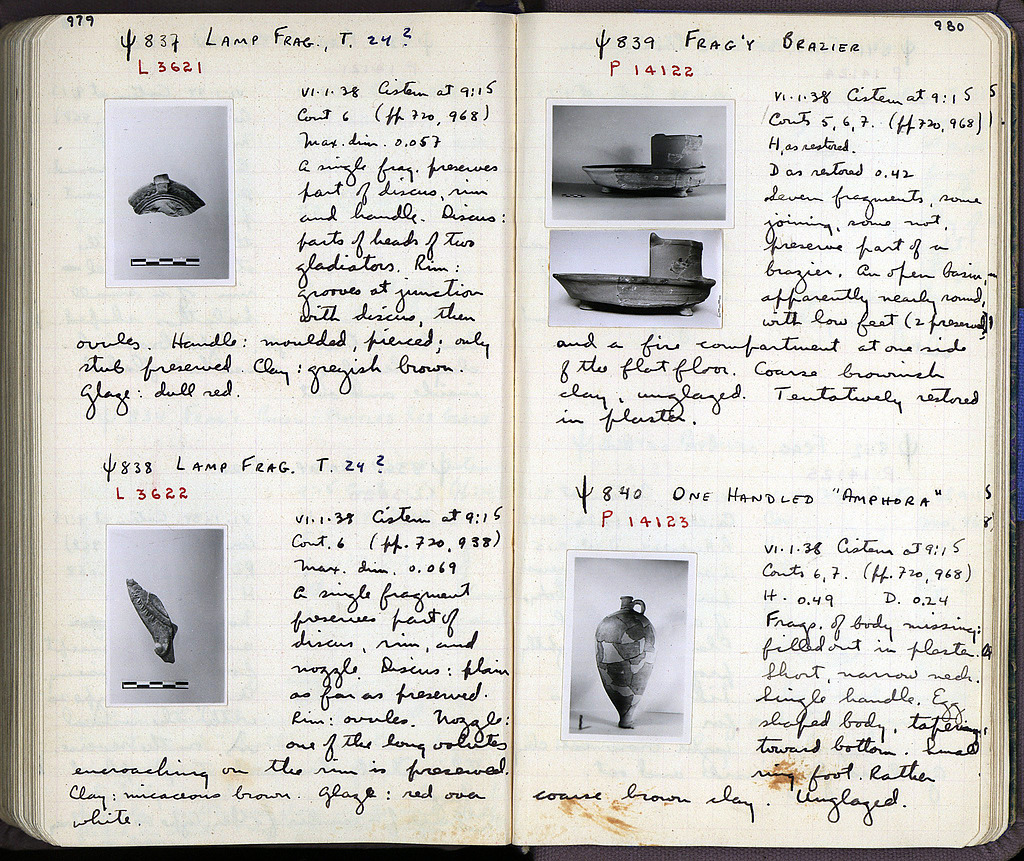 979
ψ 837 LAMP FRAG., T. 24 ?
L 3621
VI.1.38 Cistern at 9:15
Cont 6 (pp. 720, 968)
Max. dim. 0.057
A single frag. preserves
part of discus, rim
and handle. Discus:
parts of heads of two
gladiators. Rim:
grooves at junction
with discus, then
ovules. Handle: moulded, pierced; only
stub preserved. Clay: greyish brown.
Glaze: dull red.
ψ 838 LAMP FRAG. T. 24 ?
L 3622
VI.1.38 Cistern at 9:15
Cont. 6 (pp. 720, 938)
Max. dim. 0.069
A single fragment
preserves part of
discus, rim, and
nozzle. Discus: plain
as far as preserved.
Rim: ovules. Nozzle:
one of the long volutes
encroaching on the rim is preserved.
Clay: micaceous brown. Glaze: red over
white.
980
ψ 839 FRAG'Y BRAZIER
P 14122
VI.1.38 Cistern at 9:15
Conts 5, 6, 7. (pp. 720, 968)
H. as restored.
D as restored 0.42
Seven fragments, some
joining, some not,
preserve part of a
brazier. An open basin,
apparently nearly round,
with low feet (2 preserved)
and a fire compartment at one side
of the flat floor. Coarse brownish
clay, unglazed. Tentatively restored
in plaster.
ψ 840 ONE HANDLED "AMPHORA"
P 14123
VI.1.38 Cistern at 9:15
Conts 6, 7. (pp. 720, 968)
H. 0.49 D. 0.24
Frags. of body missing;
filled out in plaster.
Short, narrow neck.
Single handle. Egg
shaped body, tapering
toward bottom. Small
ring foot. Rather
coarse brown clay. Unglazed.